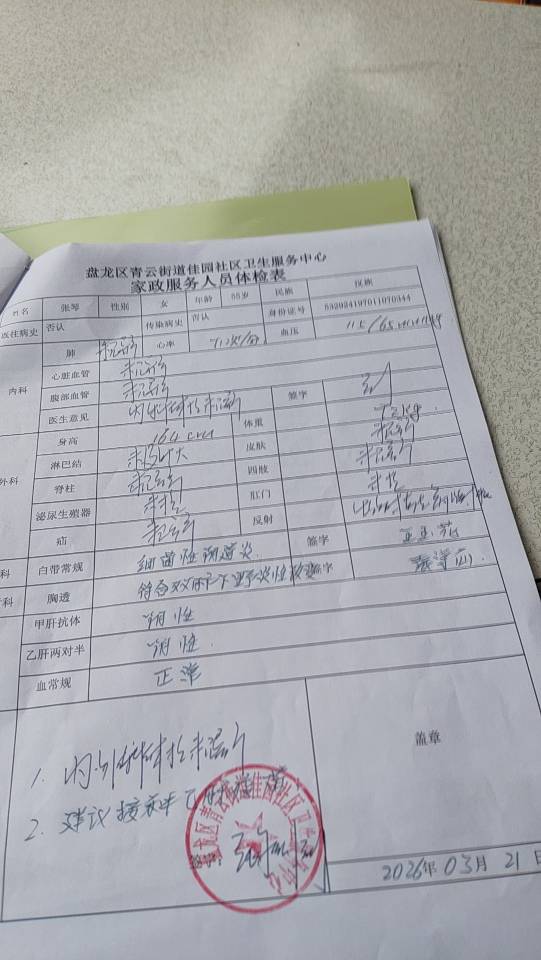 盘龙区青云街道佳园社区卫生服务中心
家政服务人员体检表
姓名 张琴 性别 女 年龄 55岁 民族 汉族
既往病史 否认 传染病史 否认 身份证号 532924197011070344
内科 肺 未见异常 心率 71次/分 血压 115/65mmHg
心脏血管 未见异常
腹部血管 未见异常
医生意见 内科体检未见异常 签字
外科 身高 164cm 体重 72kg
淋巴结 未见肿大 皮肤 未见异常
脊柱 未见异常 四肢 未见异常
泌尿生殖器 未检 肛门 未检
疝 未见异常 反射
科 白带常规 细菌性阴道炎 签字
科 胸透 符合双肺下野炎性 签字
甲肝抗体 阴性
乙肝两对半 阴性
血常规 正常
1. 内外科体检未见异常
2. 建议接种乙肝疫苗
盖章
盘龙区青云街道佳园社区卫生服务中心
2026年03月21日